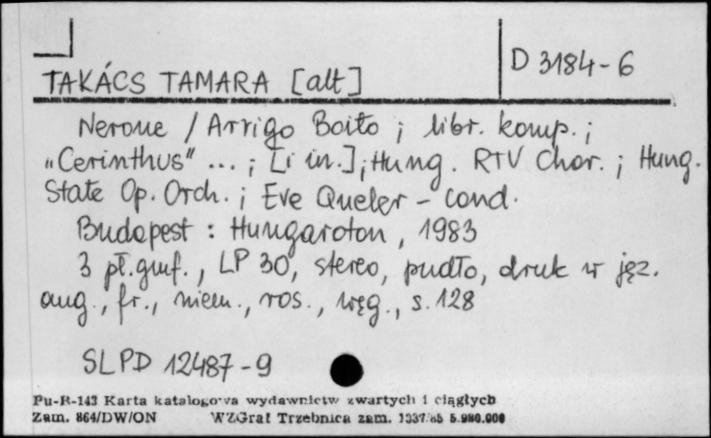 D 3184-6
TAKÁCS TAMARA [alt]
Nerone / Arrigo Boito ; libr. komp. ;
„Cerinthus" ... ; [i in.] ; Hung. RTV Chor. ; Hung.
State Op. Orch. ; Eve Queler - cond.
Budapest : Hungaroton, 1983
3 pł. gmf., LP 30, stereo, pudło, druk w jęz.
ang., fr., niem., ros., węg., s. 128
SLPD 12487-9
Pu-R-143 Karta katalogowa wydawnictw zwartych i ciągłych
Zam. 864/DW/ON WZGraf Trzebnica zam. 1337/85 5.980.000